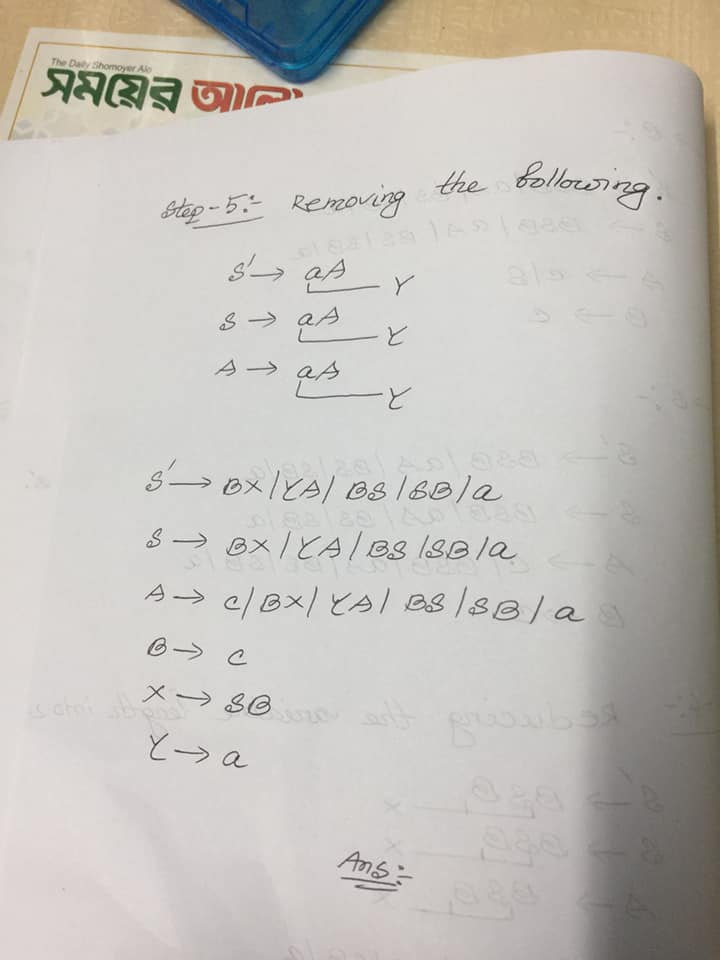 The Daily Shomoyer Alo
সময়ের আলো
Step-5:- Removing the following.
S' → aA
Y
S → aA
Y
A → aA
Y
S' → BX/YA/BS/SB/a
S → BX/YA/BS/SB/a
A → c/BX/YA/BS/SB/a
B → c
X → SB
Y → a
Ans:-